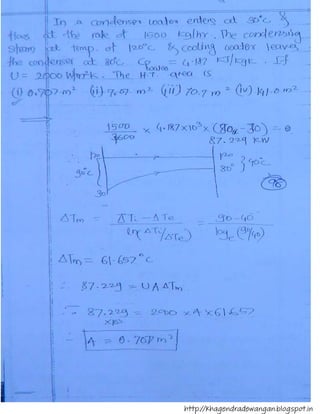 In a condenser water enters at 30°C &
flows at the rate of 1500 kg/hr. The condensing
steam at temp. of 120°C & cooling water leaves
the condenser at 80°C. Cp water = 4.187 KJ/kgK. If
U = 2000 W/m²K. The H.T. area is
(i) 0.707 m² (ii) 7.07 m² (iii) 70.7 m² (iv) 141.0 m²
1500/3600 × 4.187×10³ × (80 - 30) = Q
87.229 KW
120 120
90°C 80° } 40°C
30
ΔTm = ΔTi - ΔTe / ln(ΔTi/ΔTe) = 90-40 / loge(90/40)
ΔTm = 61.657°C
∴ 87.229 = UAΔTm
∴ 87.229 ×10³ = 2000 × A × 61.657
A = 0.707 m²
http://khagendradewangan.blogspot.in